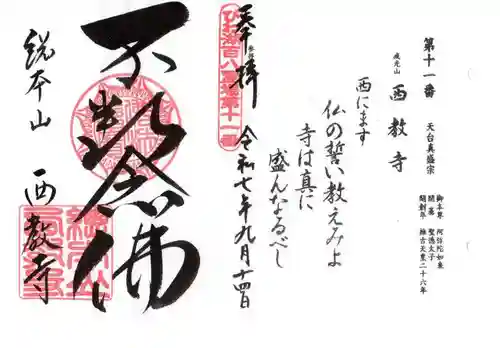 第十一番
天台真盛宗
戒光山
西教寺
御本尊 阿弥陀如来
開基 聖徳太子
開創年 推古天皇二十六年
西にます
仏の誓い教えみよ
寺は真に
盛んなるべし
奉拝
令和七年九月十四日
不断念佛
総本山 西教寺